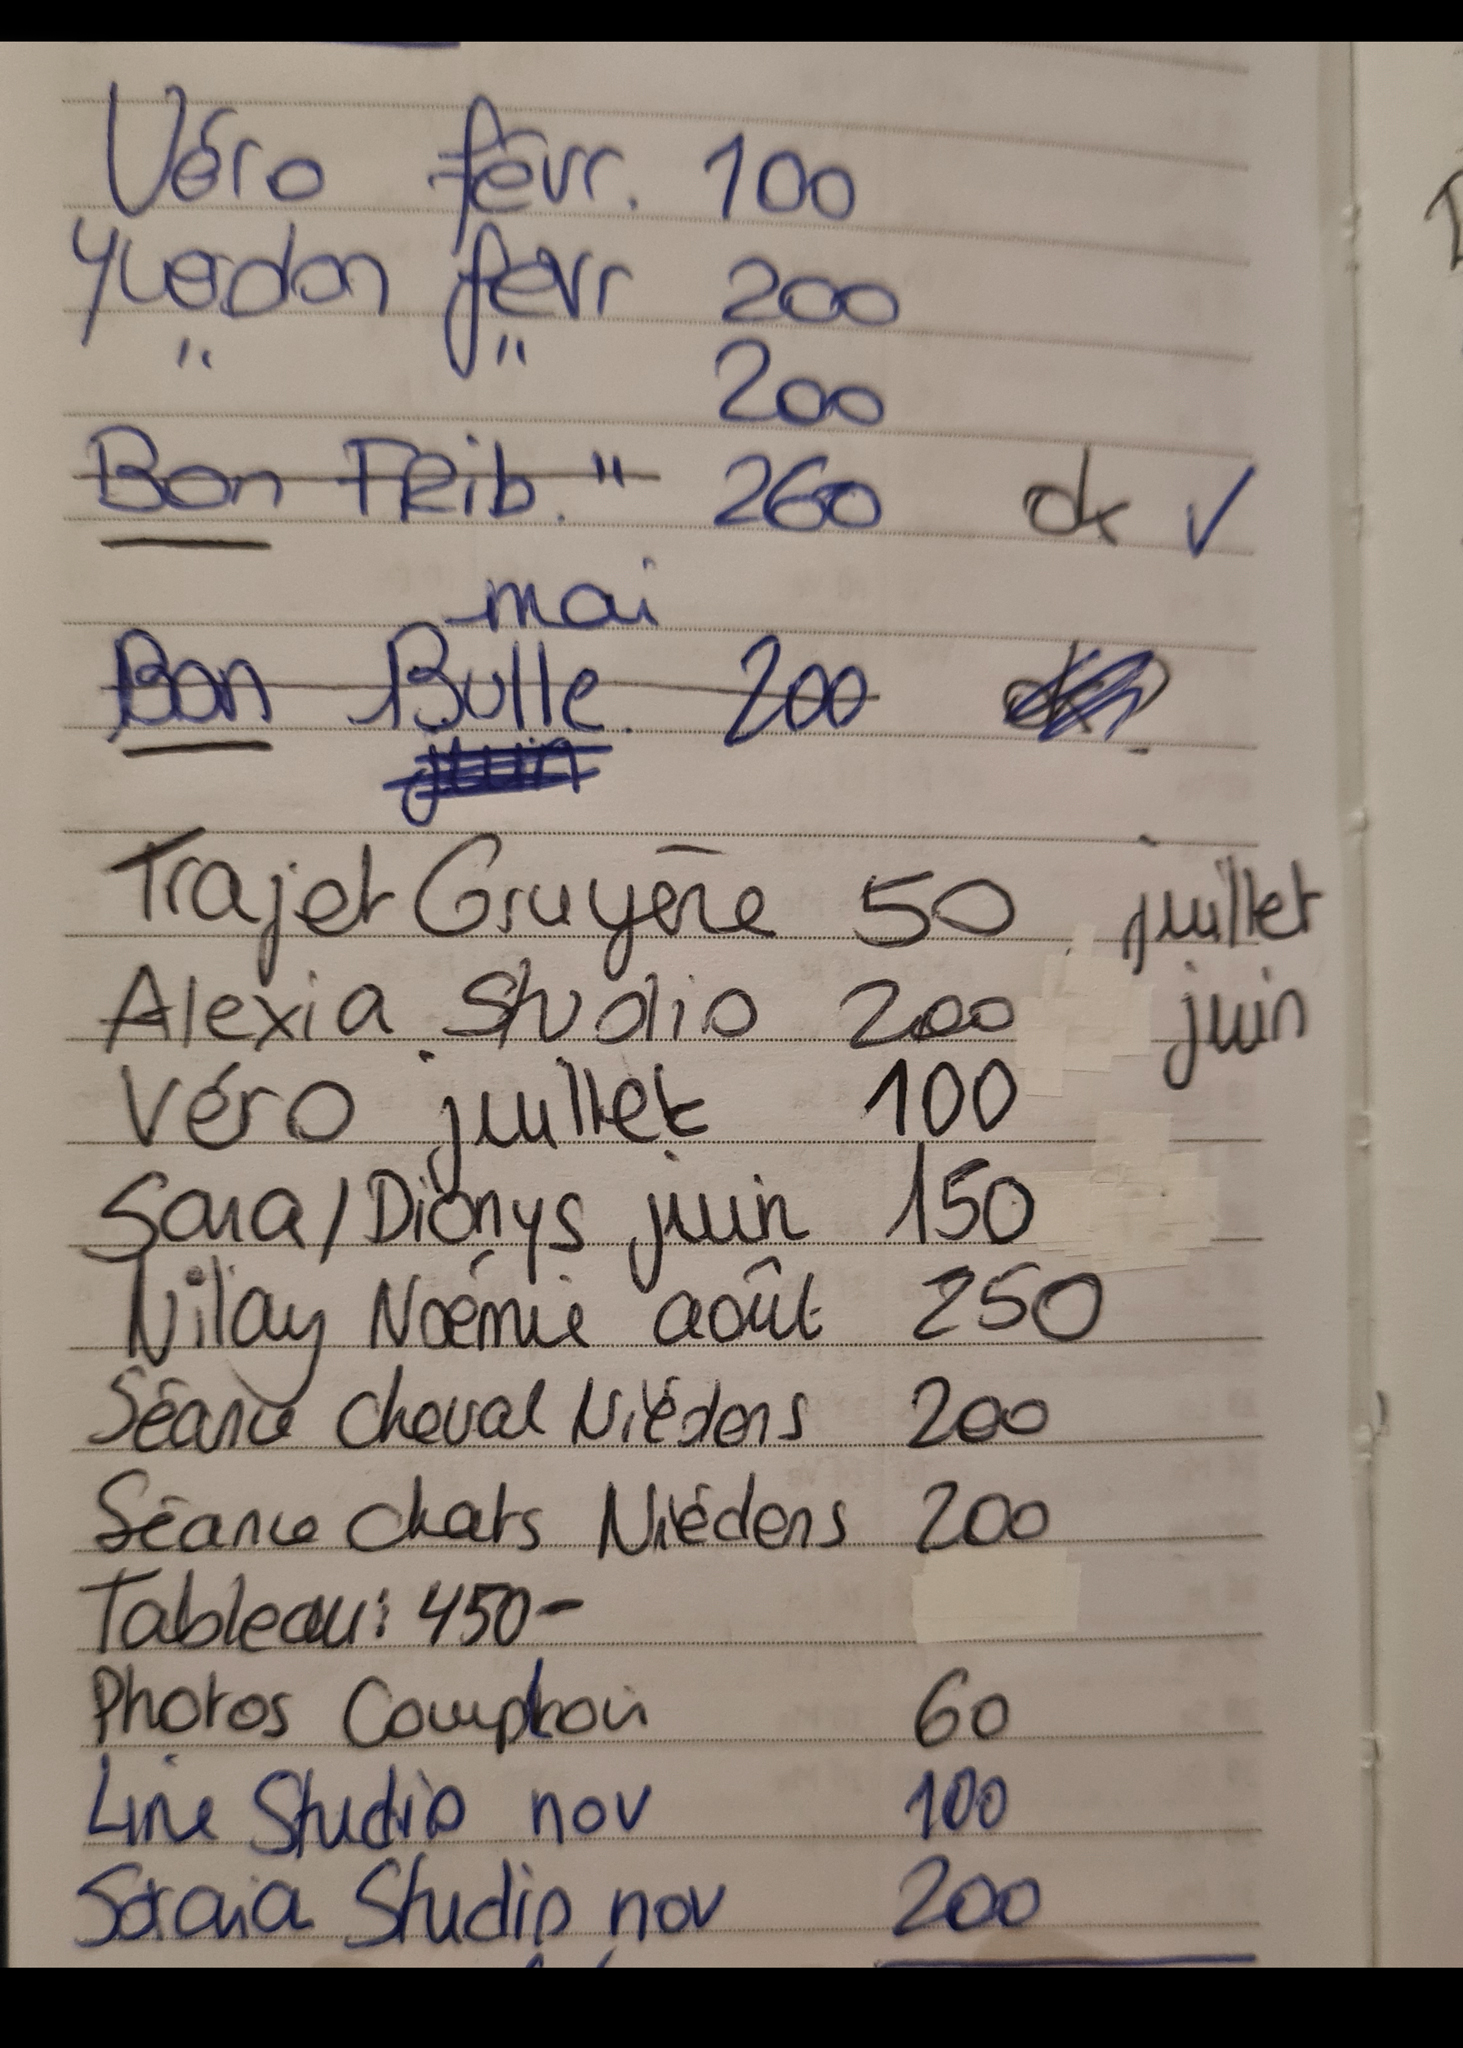 Véro févr. 100
Yverdon févr 200
" " 200
Bon FRib. " 260 ok ✓
mai
Bon Bulle. 200 ok
juin
Trajet Gruyère 50 juillet
Alexia Studio 200 juin
Véro juillet 100
Sara/Dionys juin 150
Nilay Noémie août 250
Séance cheval Niédens 200
Séance chats Niédens 200
Tableau: 450-
Photos Comptoir 60
Line Studio nov 100
Soraia Studio nov 200